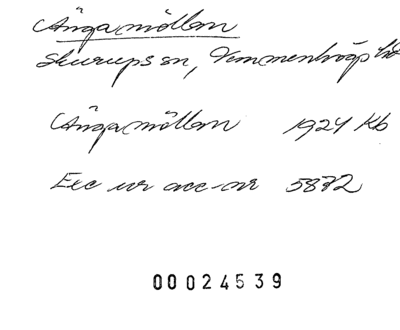 Ängamöllan
Skurups sn, Vemmenhögs hd
Ängamöllan 1924 Kb
Exc ur acc-nr 5872
00024539